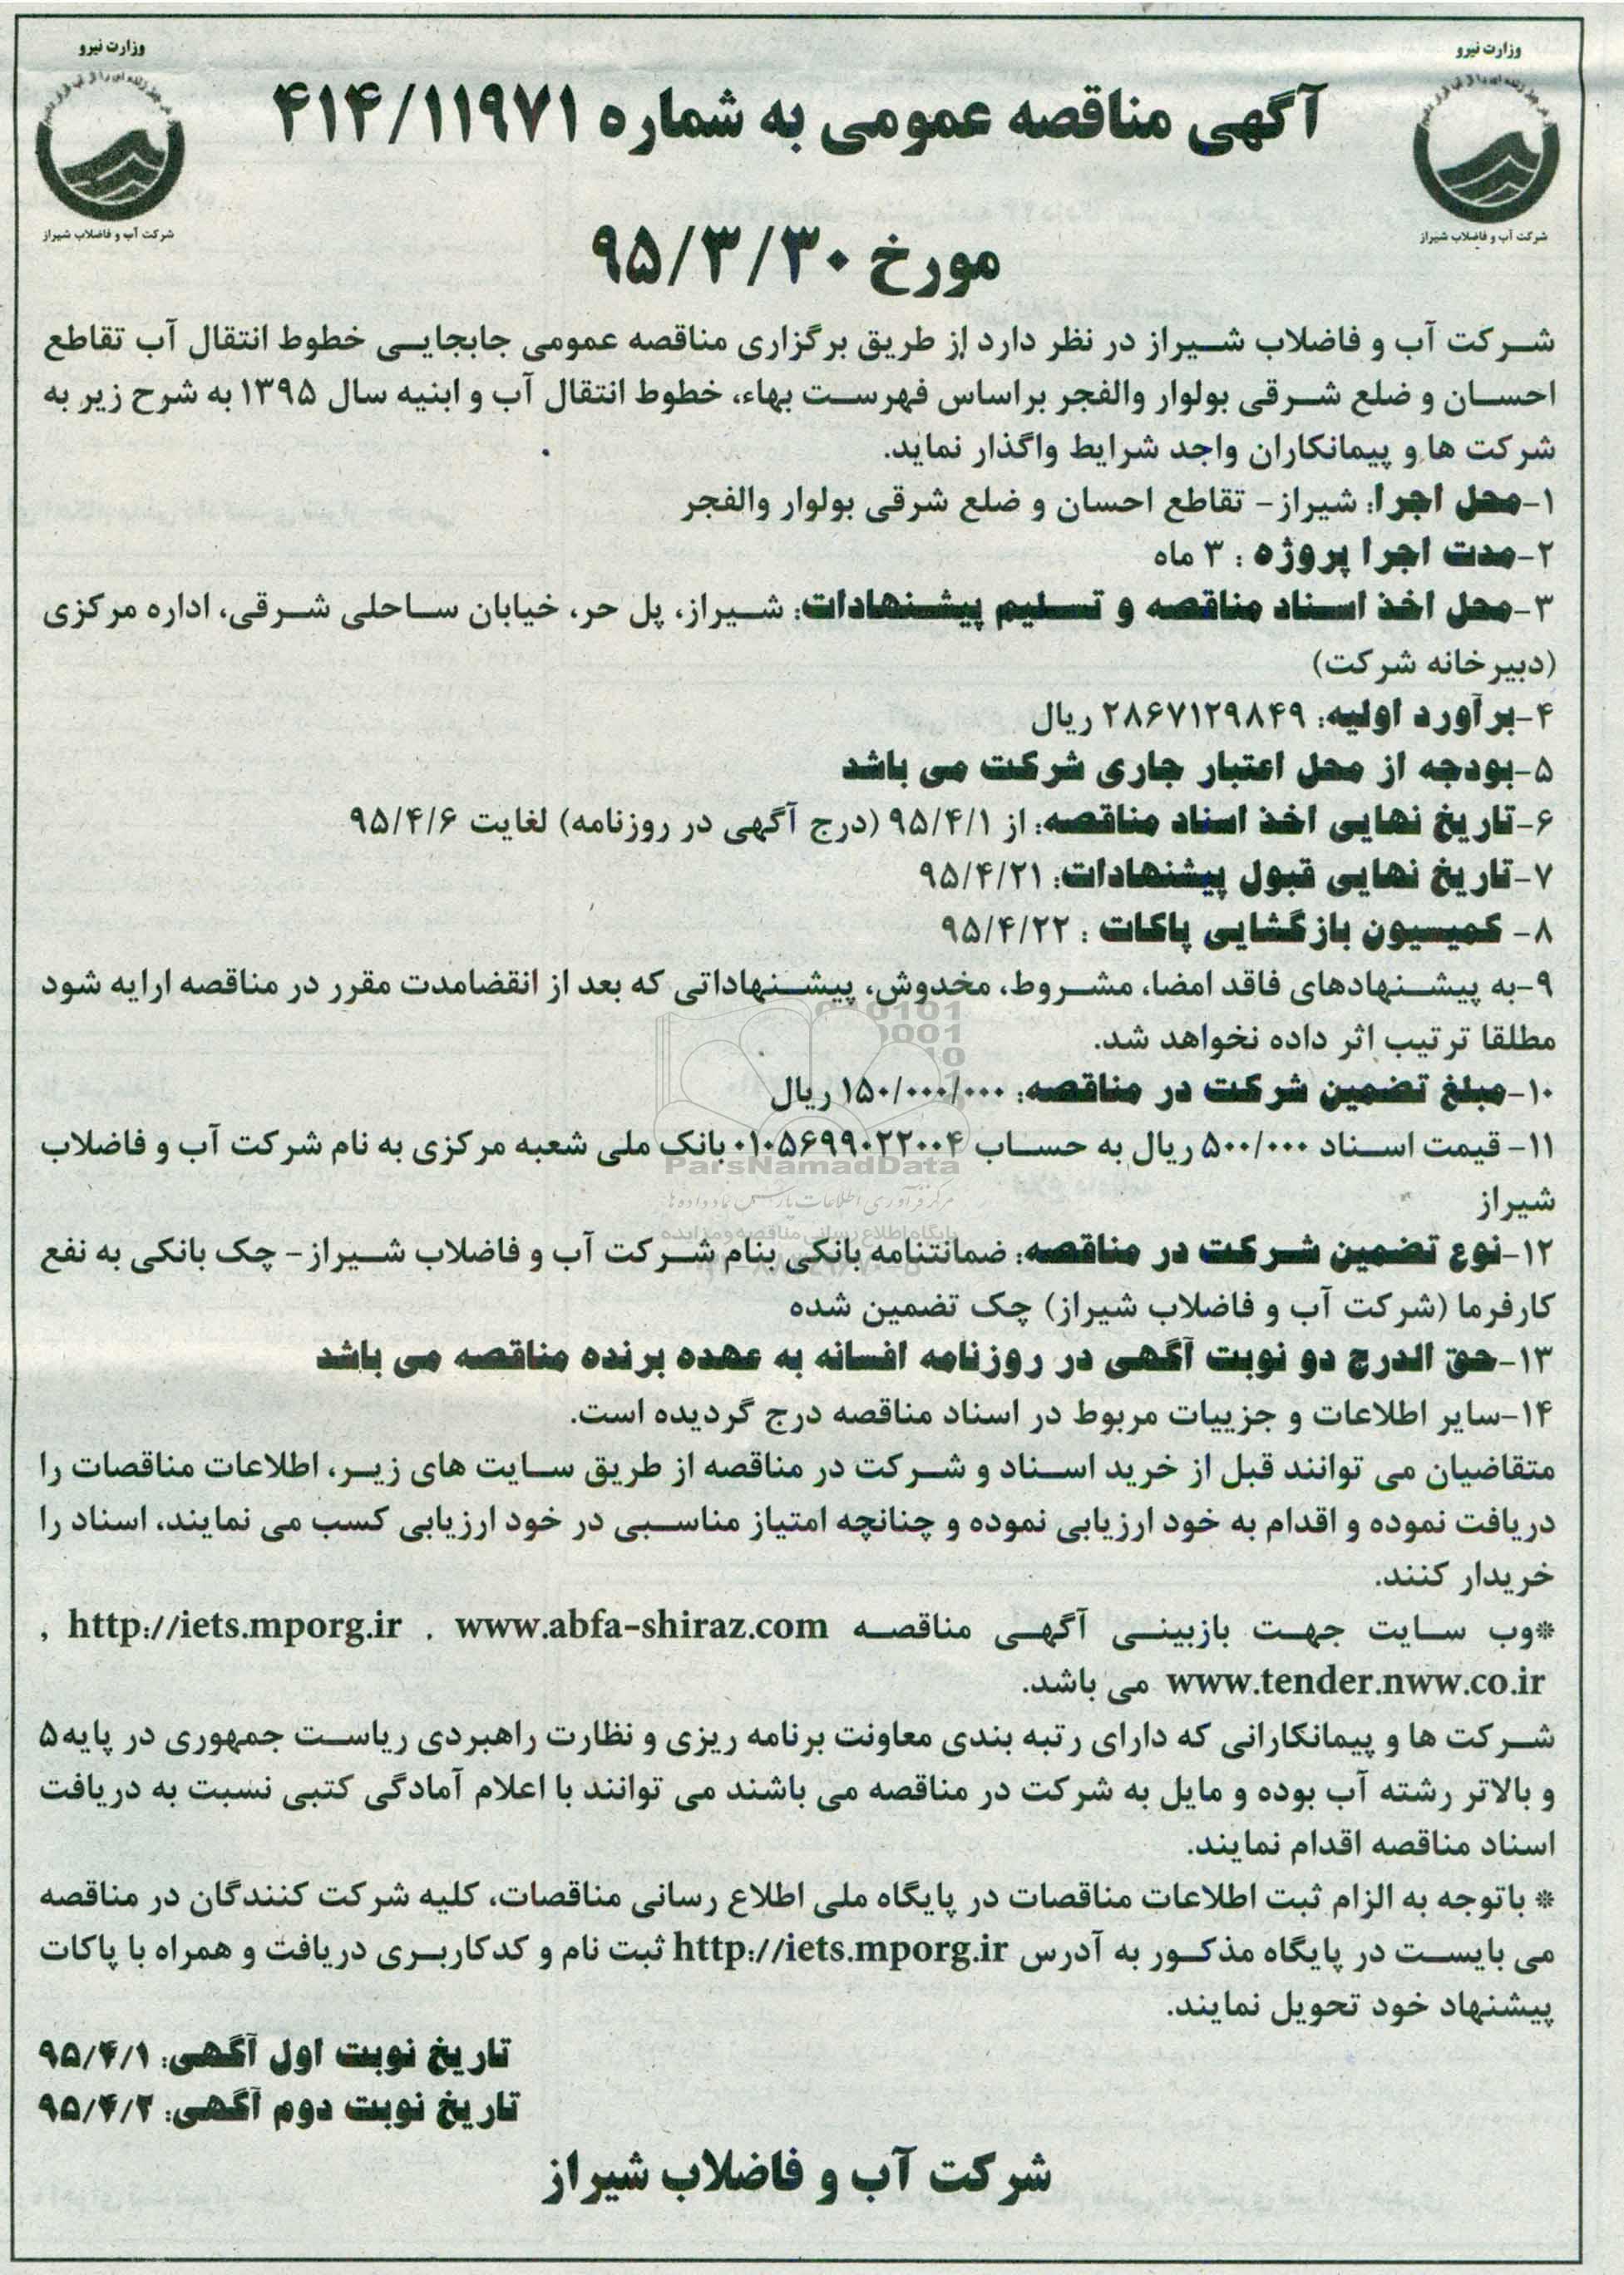 وزارت نیرو
شرکت آب و فاضلاب شیراز
وزارت نیرو
شرکت آب و فاضلاب شیراز
آگهی مناقصه عمومی به شماره ۴۱۴/۱۱۹۷۱
مورخ ۹۵/۳/۳۰
شرکت آب و فاضلاب شیراز در نظر دارد از طریق برگزاری مناقصه عمومی جابجایی خطوط انتقال آب تقاطع
احسان و ضلع شرقی بولوار والفجر براساس فهرست بهاء، خطوط انتقال آب و ابنیه سال ۱۳۹۵ به شرح زیر به
شرکت ها و پیمانکاران واجد شرایط واگذار نماید.
۱-محل اجرا: شیراز- تقاطع احسان و ضلع شرقی بولوار والفجر
۲-مدت اجرا پروژه : ۳ ماه
۳-محل اخذ اسناد مناقصه و تسلیم پیشنهادات: شیراز، پل حر، خیابان ساحلی شرقی، اداره مرکزی
(دبیرخانه شرکت)
۴-برآورد اولیه: ۲۸۶۷۱۲۹۸۴۹ ریال
۵-بودجه از محل اعتبار جاری شرکت می باشد
۶-تاریخ نهایی اخذ اسناد مناقصه: از ۹۵/۴/۱ (درج آگهی در روزنامه) لغایت ۹۵/۴/۶
۷-تاریخ نهایی قبول پیشنهادات: ۹۵/۴/۲۱
۸- کمیسیون بازگشایی پاکات : ۹۵/۴/۲۲
۹-به پیشنهادهای فاقد امضا، مشروط، مخدوش، پیشنهاداتی که بعد از انقضامدت مقرر در مناقصه ارایه شود
مطلقا ترتیب اثر داده نخواهد شد.
۱۰-مبلغ تضمین شرکت در مناقصه: ۱۵۰/۰۰۰/۰۰۰ ریال
۱۱- قیمت اسناد ۵۰۰/۰۰۰ ریال به حساب ۰۱۰۵۶۹۹۰۲۲۰۰۴ بانک ملی شعبه مرکزی به نام شرکت آب و فاضلاب
شیراز
ParsNamadData
۱۲-نوع تضمین شرکت در مناقصه: ضمانتنامه بانکی بنام شرکت آب و فاضلاب شیراز- چک بانکی به نفع
کارفرما (شرکت آب و فاضلاب شیراز) چک تضمین شده
۱۳-حق الدرج دو نوبت آگهی در روزنامه افسانه به عهده برنده مناقصه می باشد
۱۴-سایر اطلاعات و جزییات مربوط در اسناد مناقصه درج گردیده است.
متقاضیان می توانند قبل از خرید اسناد و شرکت در مناقصه از طریق سایت های زیر، اطلاعات مناقصات را
دریافت نموده و اقدام به خود ارزیابی نموده و چنانچه امتیاز مناسبی در خود ارزیابی کسب می نمایند، اسناد را
خریدار کنند.
*وب سایت جهت بازبینی آگهی مناقصه www.abfa-shiraz.com , http://iets.mporg.ir ,
www.tender.nww.co.ir می باشد.
شرکت ها و پیمانکارانی که دارای رتبه بندی معاونت برنامه ریزی و نظارت راهبردی ریاست جمهوری در پایه۵
و بالاتر رشته آب بوده و مایل به شرکت در مناقصه می باشند می توانند با اعلام آمادگی کتبی نسبت به دریافت
اسناد مناقصه اقدام نمایند.
* باتوجه به الزام ثبت اطلاعات مناقصات در پایگاه ملی اطلاع رسانی مناقصات، کلیه شرکت کنندگان در مناقصه
می بایست در پایگاه مذکور به آدرس http://iets.mporg.ir ثبت نام و کدکاربری دریافت و همراه با پاکات
پیشنهاد خود تحویل نمایند.
تاریخ نوبت اول آگهی: ۹۵/۴/۱
تاریخ نوبت دوم آگهی: ۹۵/۴/۲
شرکت آب و فاضلاب شیراز